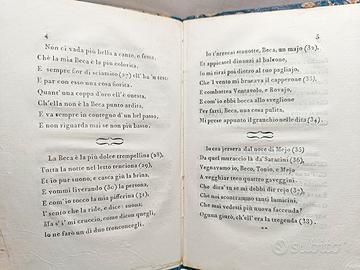 4
Non ci vada più bella a canto, e festa,
Chè la mia Beca è la più colorita,
E sempre fior di sciamito (27) ell' ha 'n testa,
E par con esso una cosa fiorita.
Quant' una coppa d'oro ell' è onesta,
Ch'ella non è la Beca punto ardita,
E va sempre in contegno d' un bel passo,
E non riguarda mai se non più basso.
La Beca è la più dolce trempellina (28),
Tutta la notte nel letto trenciona (29),
Es'io pur sonno, e casca giù la brina,
E vommi liverando (30) la persona,
E com'io tocco la mia pifferina (31)
I' sento che la ride, e dice: suona;
Ma s'i' mi cruccio, come dicon quegli,
Io ne farò un dì due tronconcegli.
5
Io t'arrecai stanotte, Beca, un majo (32),
Et appiccasel dinanzi al balcone,
Io mi rizai poi dietro al tuo pagliajo,
Che l'vento mi bravava il capperone (33),
E combatteva Ventavolo, e Rovajo,
E com'io ebbi bocco allo sveglione
Per farti, Beca, una cosa pulita,
Mi prese appunto il granchio nelle dita (34).
Io era jersera dal noce di Mejo (35)
Da quel muraccio là da' Saracini (36),
Vegnavamo io, Beco, Tonio, e Mejo
A veggbiar teco quattro caveggini,
Che dira' tu se mi debbi dir rejo (37),
Che noi scontrammo tanti lumicini,
Che mai vedesti più nuova faccenda?
Ognun giurò, ch'ell' era la tregenda (38).
**
Subito